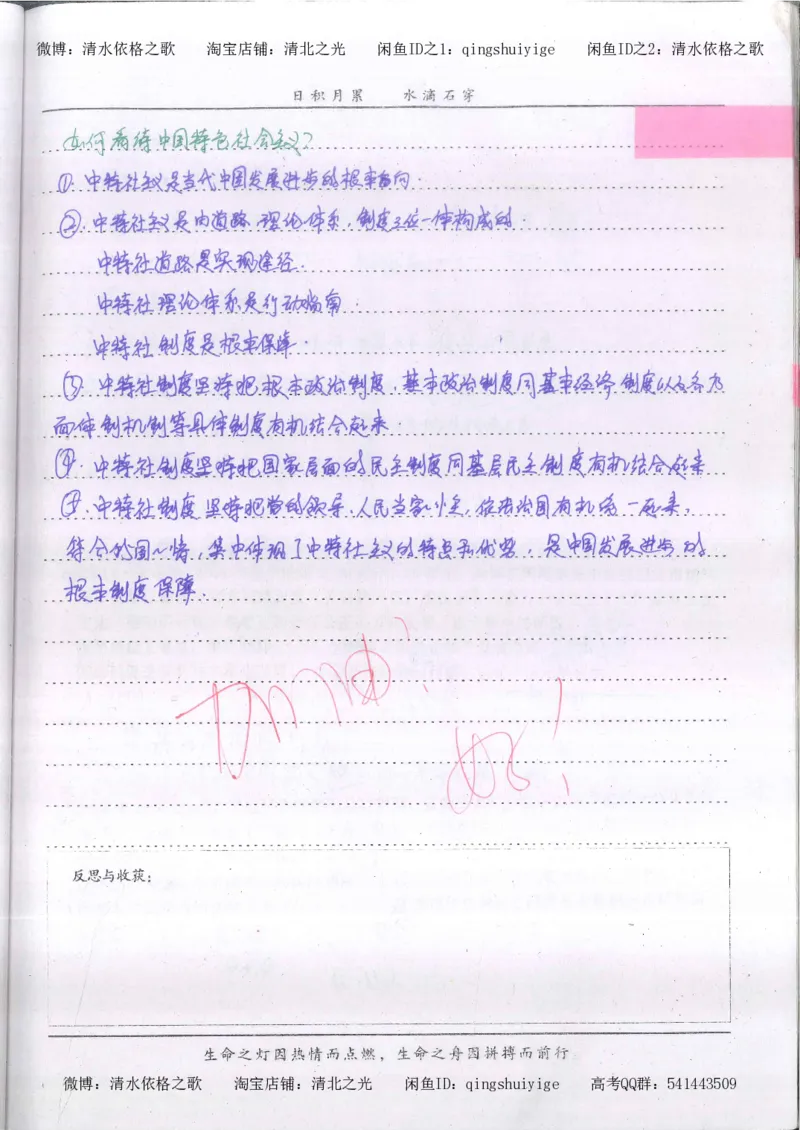 微博：清水依格之歌 淘宝店铺：清北之光 闲鱼ID之1：qingshuiyige 闲鱼ID之2：清水依格之歌
日积月累 水滴石穿
如何看待中国特色社会主义？
①. 中特社义是当代中国发展进步的根本方向.
②. 中特社义是由道路.理论体系,制度三位一体构成的
中特社道路是实现途径.
中特社理论体系是行动指南.
中特社制度是根本保障.
③ 中特社制度坚持把根本政治制度,基本政治制度同基本经济制度以及各方
面体制机制等具体制度有机结合起来
④. 中特社制度坚持把国家层面的民主制度同基层民主制度有机结合起来
⑤. 中特社制度坚持把党的领导.人民当家作主,依法治国有机统一起来,
符合我国国情,集中体现了中特社主义的特点和优势,是中国发展进步的
根本制度保障.
加油！
好！
反思与收获：
生命之灯因热情而点燃，生命之舟因拼搏而前行
微博：清水依格之歌 淘宝店铺：清北之光 闲鱼ID：qingshuiyige 高考QQ群：541443509